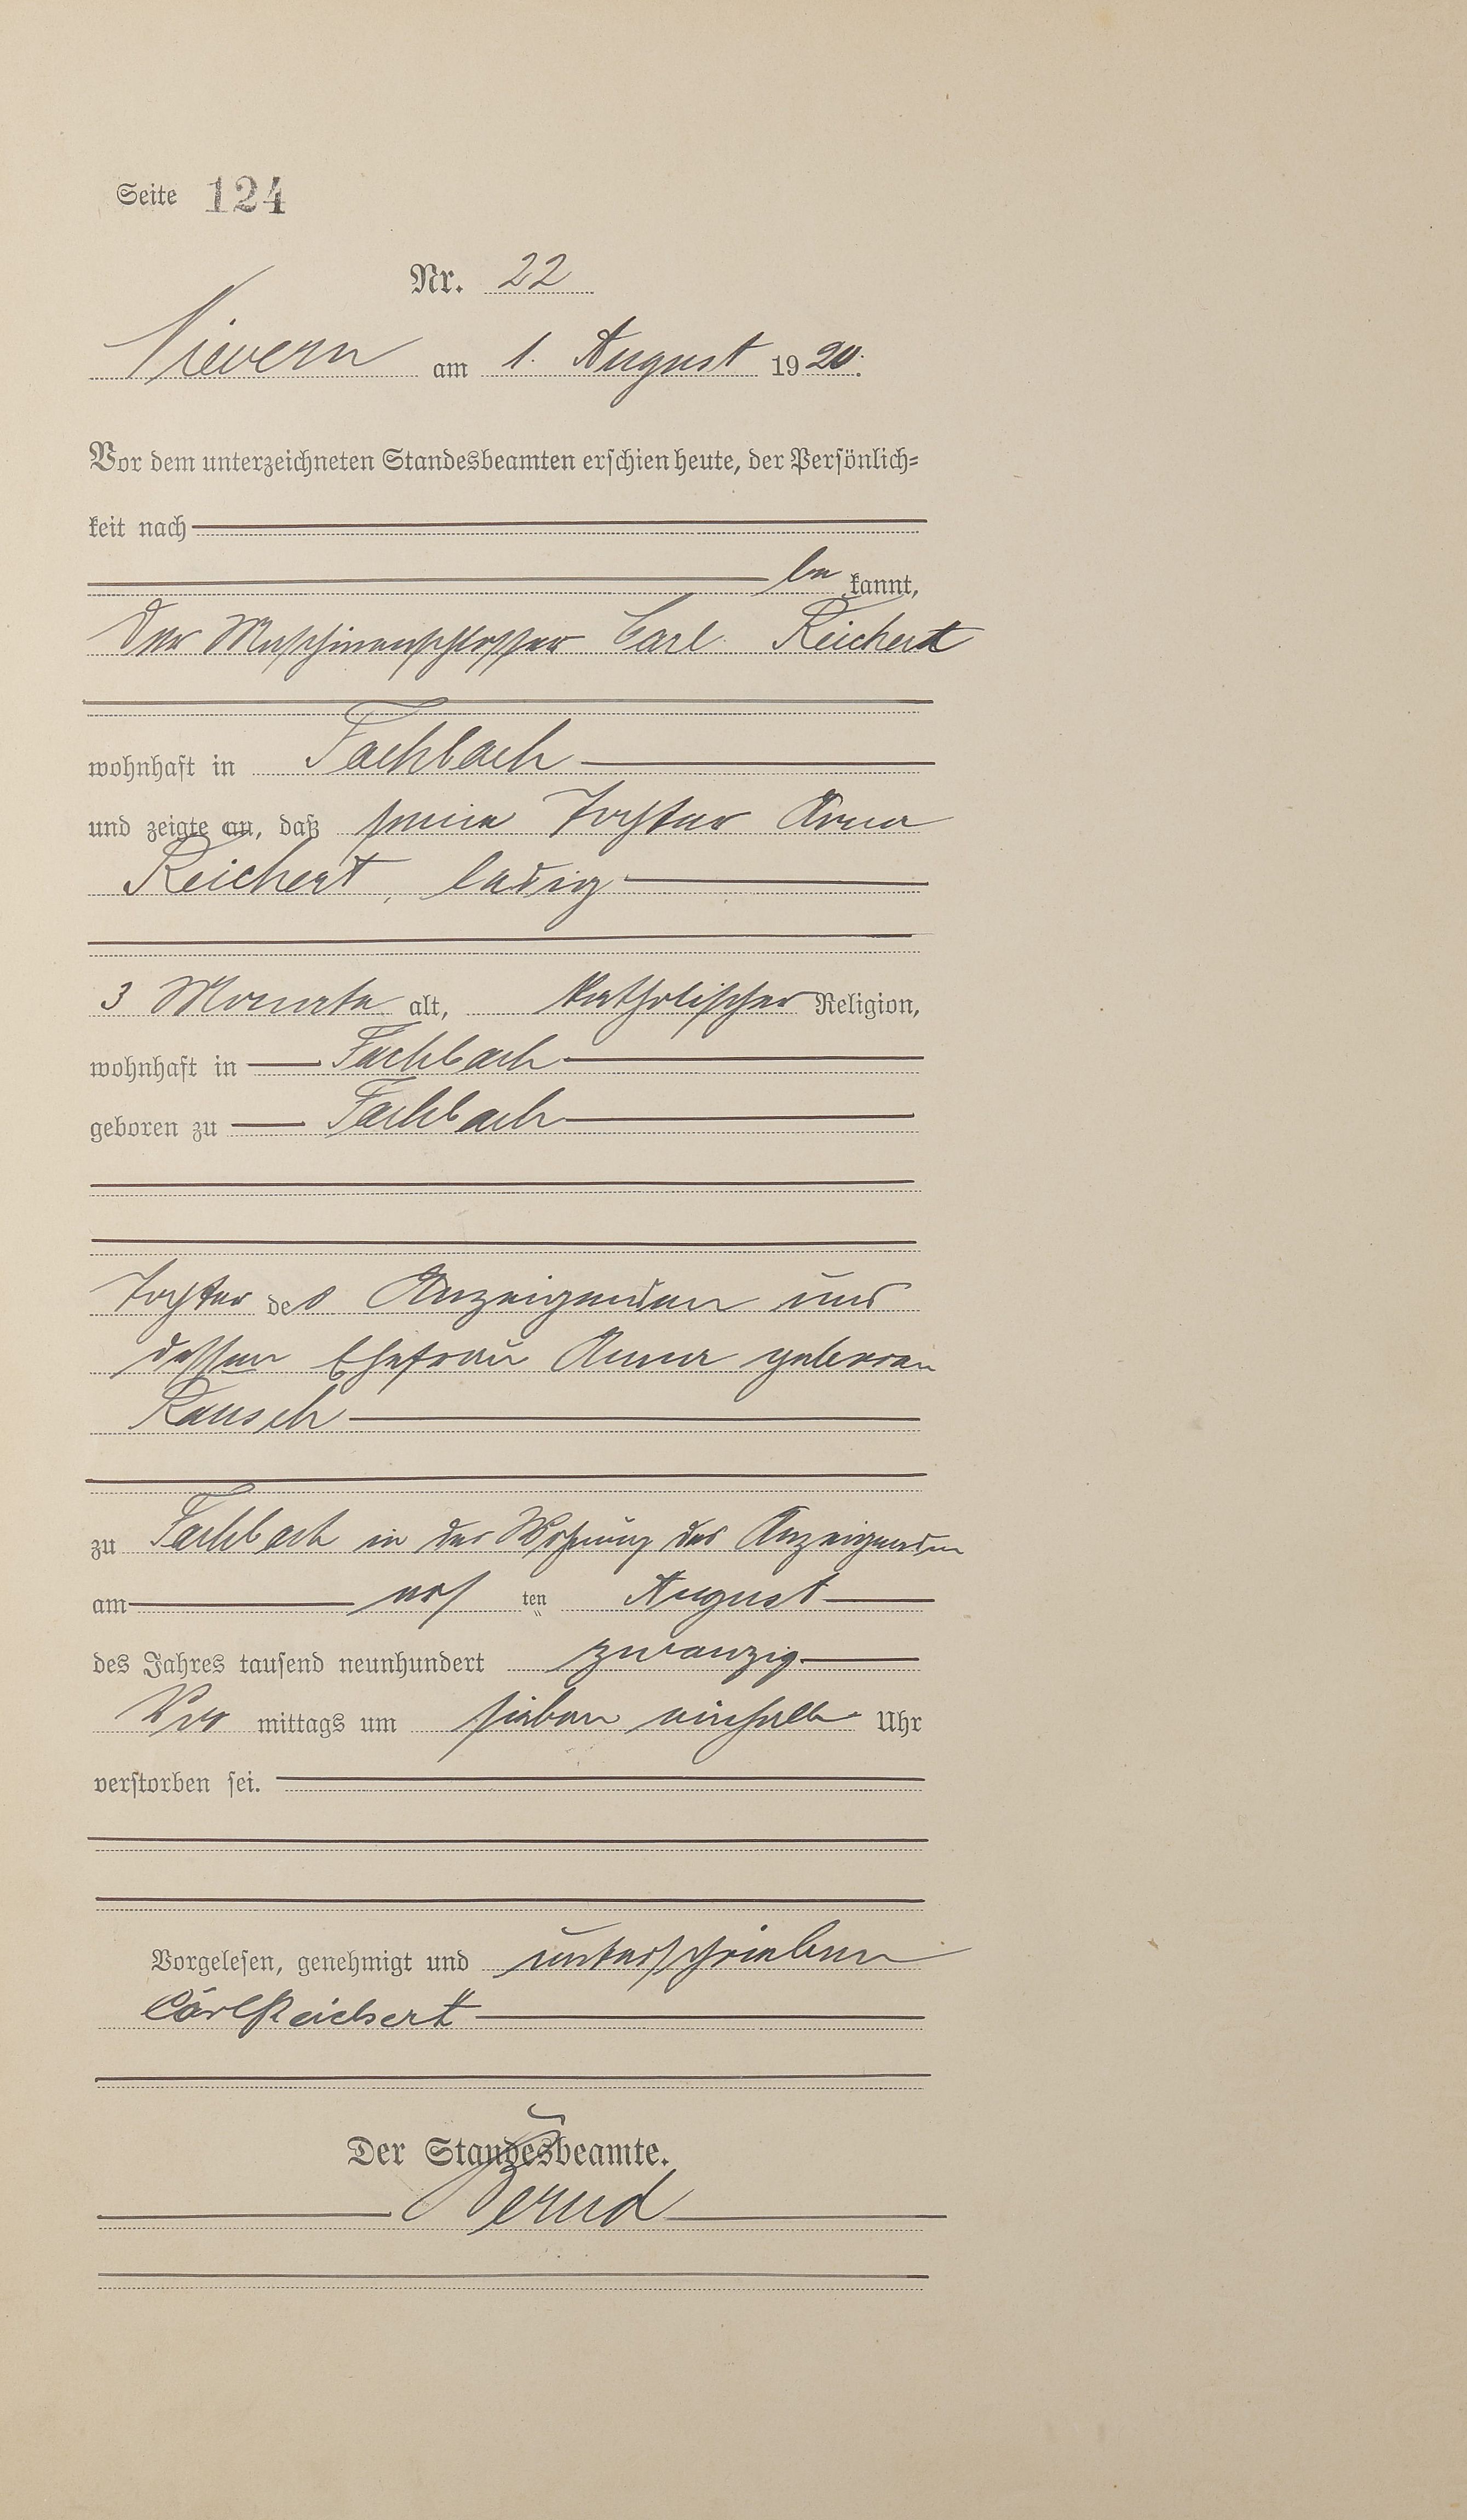 Seite 124
Nr. 22
Nievern am 1. August 1920.
Vor dem unterzeichneten Standesbeamten erschien heute, der Persönlich=
keit nach
be kannt,
Der Maschinenschlosser Carl Reichert
wohnhaft in Fachbach
und zeigte an, daß seine Tochter Anna
Reichert, ledig
3 Monate alt, katholischer Religion,
wohnhaft in Fachbach
geboren zu Fachbach
Tochter des Anzeigenden und
dessen Ehefrau Anna geboren
Rausch
zu Fachbach in der Wohnung des Anzeigenden
am ers ten August
des Jahres tausend neunhundert zwanzig
Vor mittags um sieben einhalb Uhr
verstorben sei.
Vorgelesen, genehmigt und unterschrieben
Carl Reichert
Der Standesbeamte.
Bernd